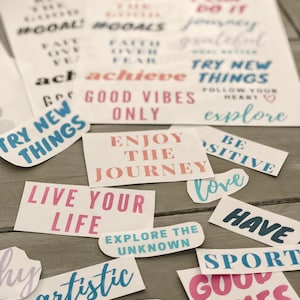 THE
GOOD
#GOALS
#GOALS
DO IT
journey
grateful
FAITH
OVER
FEAR
FAITH
OVER
FEAR
TRY NEW
THINGS
achieve
FOLLOW YOUR
HEART
GOOD VIBES
ONLY
explore
TRY NEW
THINGS
ENJOY
THE
JOURNEY
BE
POSITIVE
love
LIVE YOUR
LIFE
HAVE
EXPLORE THE
UNKNOWN
SPORT
artistic
GOOD